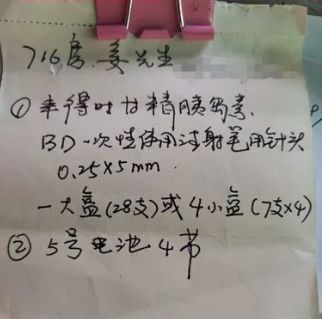 716房.姜先生
①来得时甘精胰岛素.
BD一次性使用注射笔用针头
0.25×5mm.
一大盒(28支)或4小盒(7支×4)
②5号电池4节